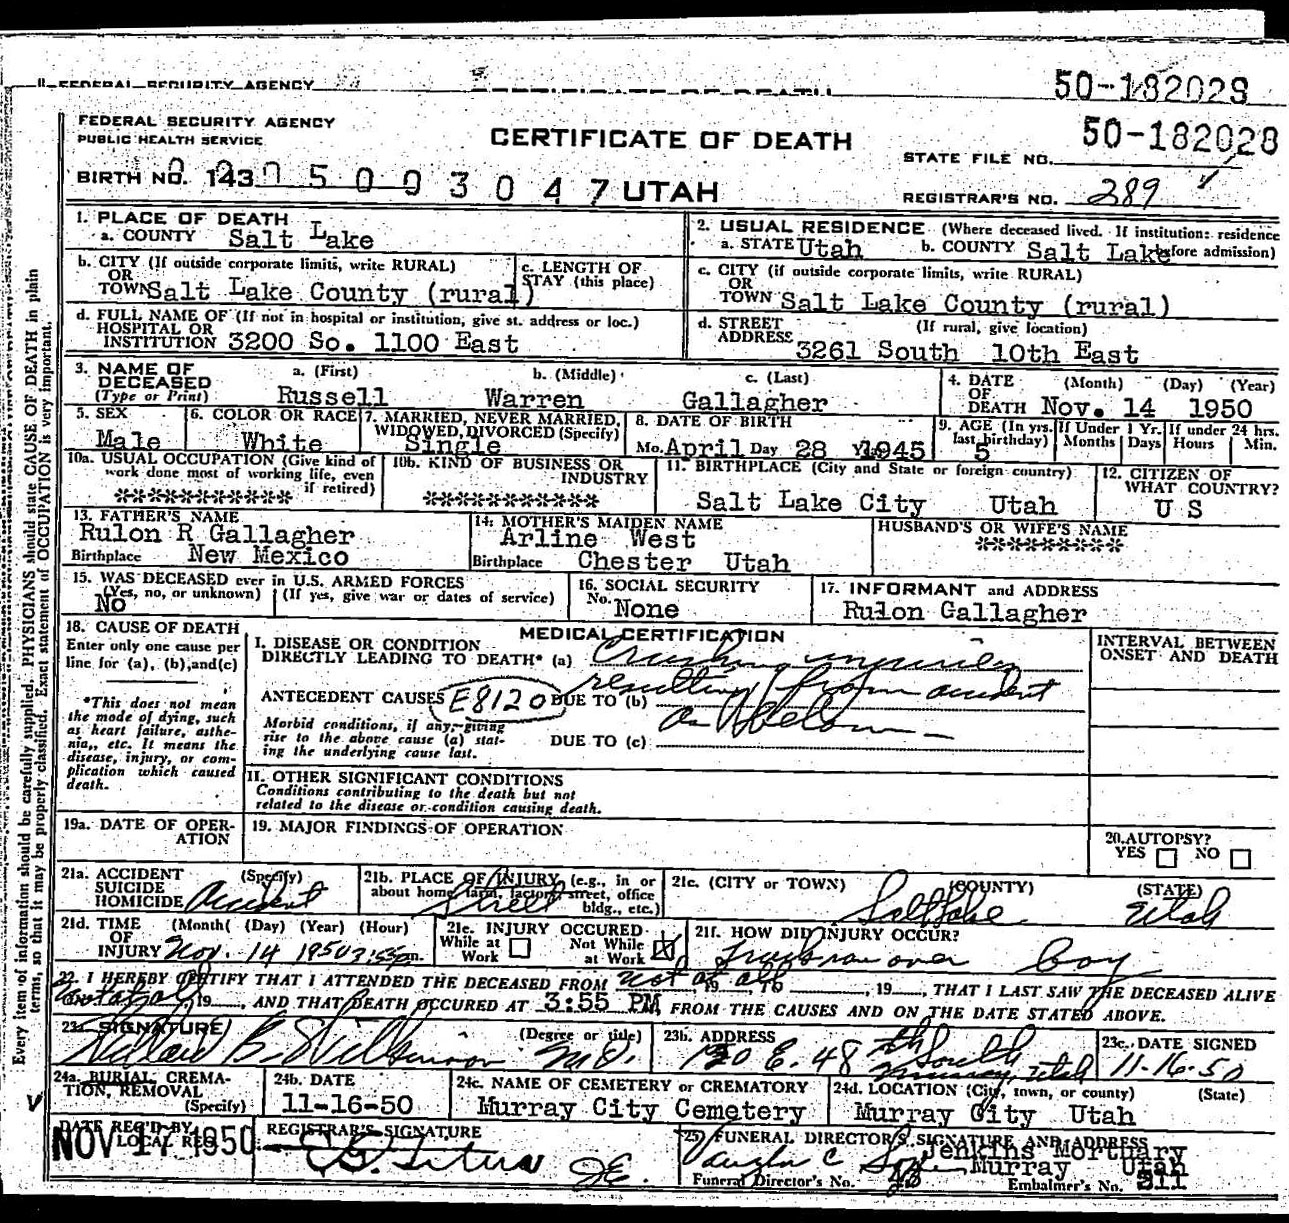 FEDERAL SECURITY AGENCY CERTIFICATE OF DEATH 50-182029
FEDERAL SECURITY AGENCY
PUBLIC HEALTH SERVICE
CERTIFICATE OF DEATH
50-182028
STATE FILE NO.
BIRTH NO. 143 UTAH
REGISTRAR'S NO. 289
1. PLACE OF DEATH
a. COUNTY Salt Lake
2. USUAL RESIDENCE (Where deceased lived. If institution: residence before admission)
a. STATE Utah b. COUNTY Salt Lake
b. CITY (If outside corporate limits, write RURAL)
OR
TOWN Salt Lake County (rural)
c. LENGTH OF
STAY (this place)
c. CITY (if outside corporate limits, write RURAL)
OR
TOWN Salt Lake County (rural)
d. FULL NAME OF (If not in hospital or institution, give st. address or loc.)
HOSPITAL OR
INSTITUTION 3200 So. 1100 East
d. STREET (If rural, give location)
ADDRESS 3261 South 10th East
3. NAME OF
DECEASED
(Type or Print)
a. (First) b. (Middle) c. (Last)
Russell Warren Gallagher
4. DATE (Month) (Day) (Year)
OF
DEATH Nov. 14 1950
5. SEX
Male
6. COLOR OR RACE
White
7. MARRIED, NEVER MARRIED,
WIDOWED, DIVORCED (Specify)
Single
8. DATE OF BIRTH
Mo. April Day 28 Yr. 1945
9. AGE (In yrs. last birthday) 5
If Under 1 Yr. Months Days
If under 24 hrs. Hours Min.
10a. USUAL OCCUPATION (Give kind of
work done most of working life, even
if retired)
***********
10b. KIND OF BUSINESS OR
INDUSTRY
***********
11. BIRTHPLACE (City and State or foreign country)
Salt Lake City Utah
12. CITIZEN OF
WHAT COUNTRY?
U S
13. FATHER'S NAME
Rulon R Gallagher
Birthplace New Mexico
14. MOTHER'S MAIDEN NAME
Arline West
Birthplace Chester Utah
HUSBAND'S OR WIFE'S NAME
*********
15. WAS DECEASED ever in U.S. ARMED FORCES
(Yes, no, or unknown) (If yes, give war or dates of service)
No
16. SOCIAL SECURITY
No. None
17. INFORMANT and ADDRESS
Rulon Gallagher
18. CAUSE OF DEATH
Enter only one cause per
line for (a), (b), and (c)
*This does not mean
the mode of dying, such
as heart failure, asthe-
nia,, etc. It means the
disease, injury, or com-
plication which caused
death.
MEDICAL CERTIFICATION
I. DISEASE OR CONDITION
DIRECTLY LEADING TO DEATH* (a) Crushing injuries
resulting from accident
ANTECEDENT CAUSES E8120 DUE TO (b)
Morbid conditions, if any, giving
rise to the above cause (a) stat-
ing the underlying cause last.
DUE TO (c)
II. OTHER SIGNIFICANT CONDITIONS
Conditions contributing to the death but not
related to the disease or condition causing death.
INTERVAL BETWEEN
ONSET AND DEATH
19a. DATE OF OPER-
ATION
19. MAJOR FINDINGS OF OPERATION
20. AUTOPSY?
YES NO
21a. ACCIDENT (Specify)
SUICIDE
HOMICIDE Accident
21b. PLACE OF INJURY (e.g., in or
about home, farm, factory, street, office
bldg., etc.)
Street
21c. (CITY or TOWN) (COUNTY) (STATE)
Salt Lake Utah
21d. TIME (Month) (Day) (Year) (Hour)
OF
INJURY Nov. 14 1950 3:55 pm.
21e. INJURY OCCURED
While at Work Not While at Work
21f. HOW DID INJURY OCCUR?
Truck ran over boy
22. I HEREBY CERTIFY THAT I ATTENDED THE DECEASED FROM not at all 19 , TO , 19 , THAT I LAST SAW THE DECEASED ALIVE
not at all , 19 , AND THAT DEATH OCCURED AT 3:55 PM FROM THE CAUSES AND ON THE DATE STATED ABOVE.
23a. SIGNATURE (Degree or title)
M.D.
23b. ADDRESS
120 E. 48th South
Murray, Utah
23c. DATE SIGNED
11-16-50
24a. BURIAL, CREMA-
TION, REMOVAL
(Specify)
24b. DATE
11-16-50
24c. NAME OF CEMETERY or CREMATORY
Murray City Cemetery
24d. LOCATION (City, town, or county) (State)
Murray City Utah
DATE REC'D BY
LOCAL REG.
NOV 17 1950
REGISTRAR'S SIGNATURE
25. FUNERAL DIRECTOR'S SIGNATURE AND ADDRESS
Jenkins Mortuary
Murray Utah
Funeral Director's No.
Embalmer's No. 311
Every item of information should be carefully supplied. PHYSICIANS should state CAUSE OF DEATH in plain
terms, so that it may be properly classified. Exact statement of OCCUPATION is very important.